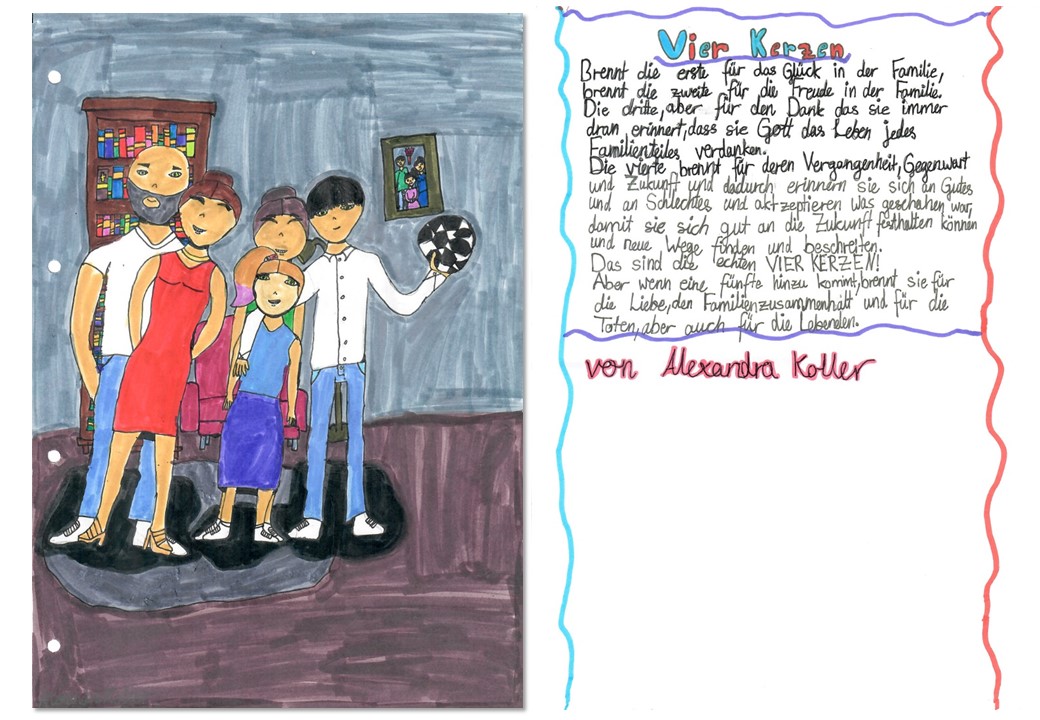 Vier Kerzen
Brennt die erste für das Glück in der Familie,
brennt die zweite für die Freude in der Familie.
Die dritte, aber für den Dank das sie immer
dran erinnert, dass sie Gott das Leben jedes
Familienteiles verdanken.
Die vierte brennt für deren Vergangenheit, Gegenwart
und Zukunft und dadurch erinnern sie sich an Gutes
und an Schlechtes und aktzeptieren was geschehen war,
damit sie sich gut an die Zukunft festhalten können
und neue Wege finden und beschreiten.
Das sind die echten VIER KERZEN!
Aber wenn eine fünfte hinzu kommt, brennt sie für
die Liebe, den Familienzusammenhalt und für die
Toten, aber auch für die Lebenden.
von Alexandra Koller